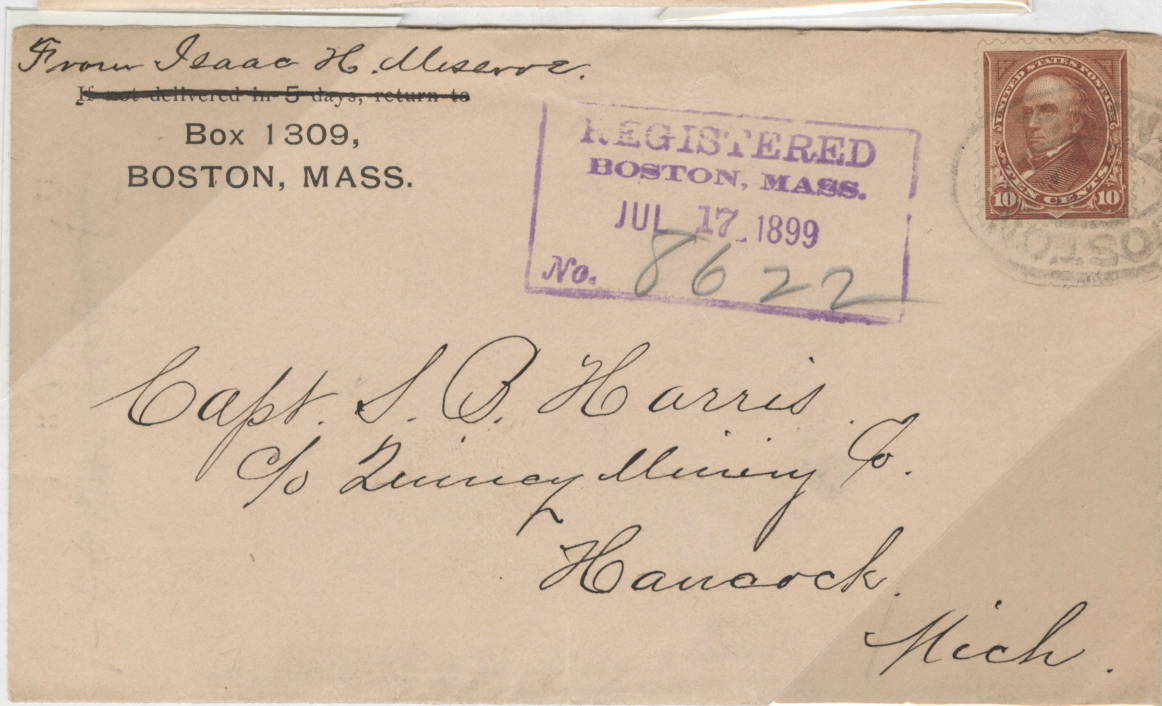 From Isaac H. Meserve.
If not delivered in 5 days, return to
Box 1309,
BOSTON, MASS.
REGISTERED
BOSTON, MASS.
JUL 17 1899
No. 8622
UNITED STATES POSTAGE
TEN CENTS
10 10
BOSTON
Capt. S. B. Harris
c/o Quincy Mining Co.
Hancock.
Mich.